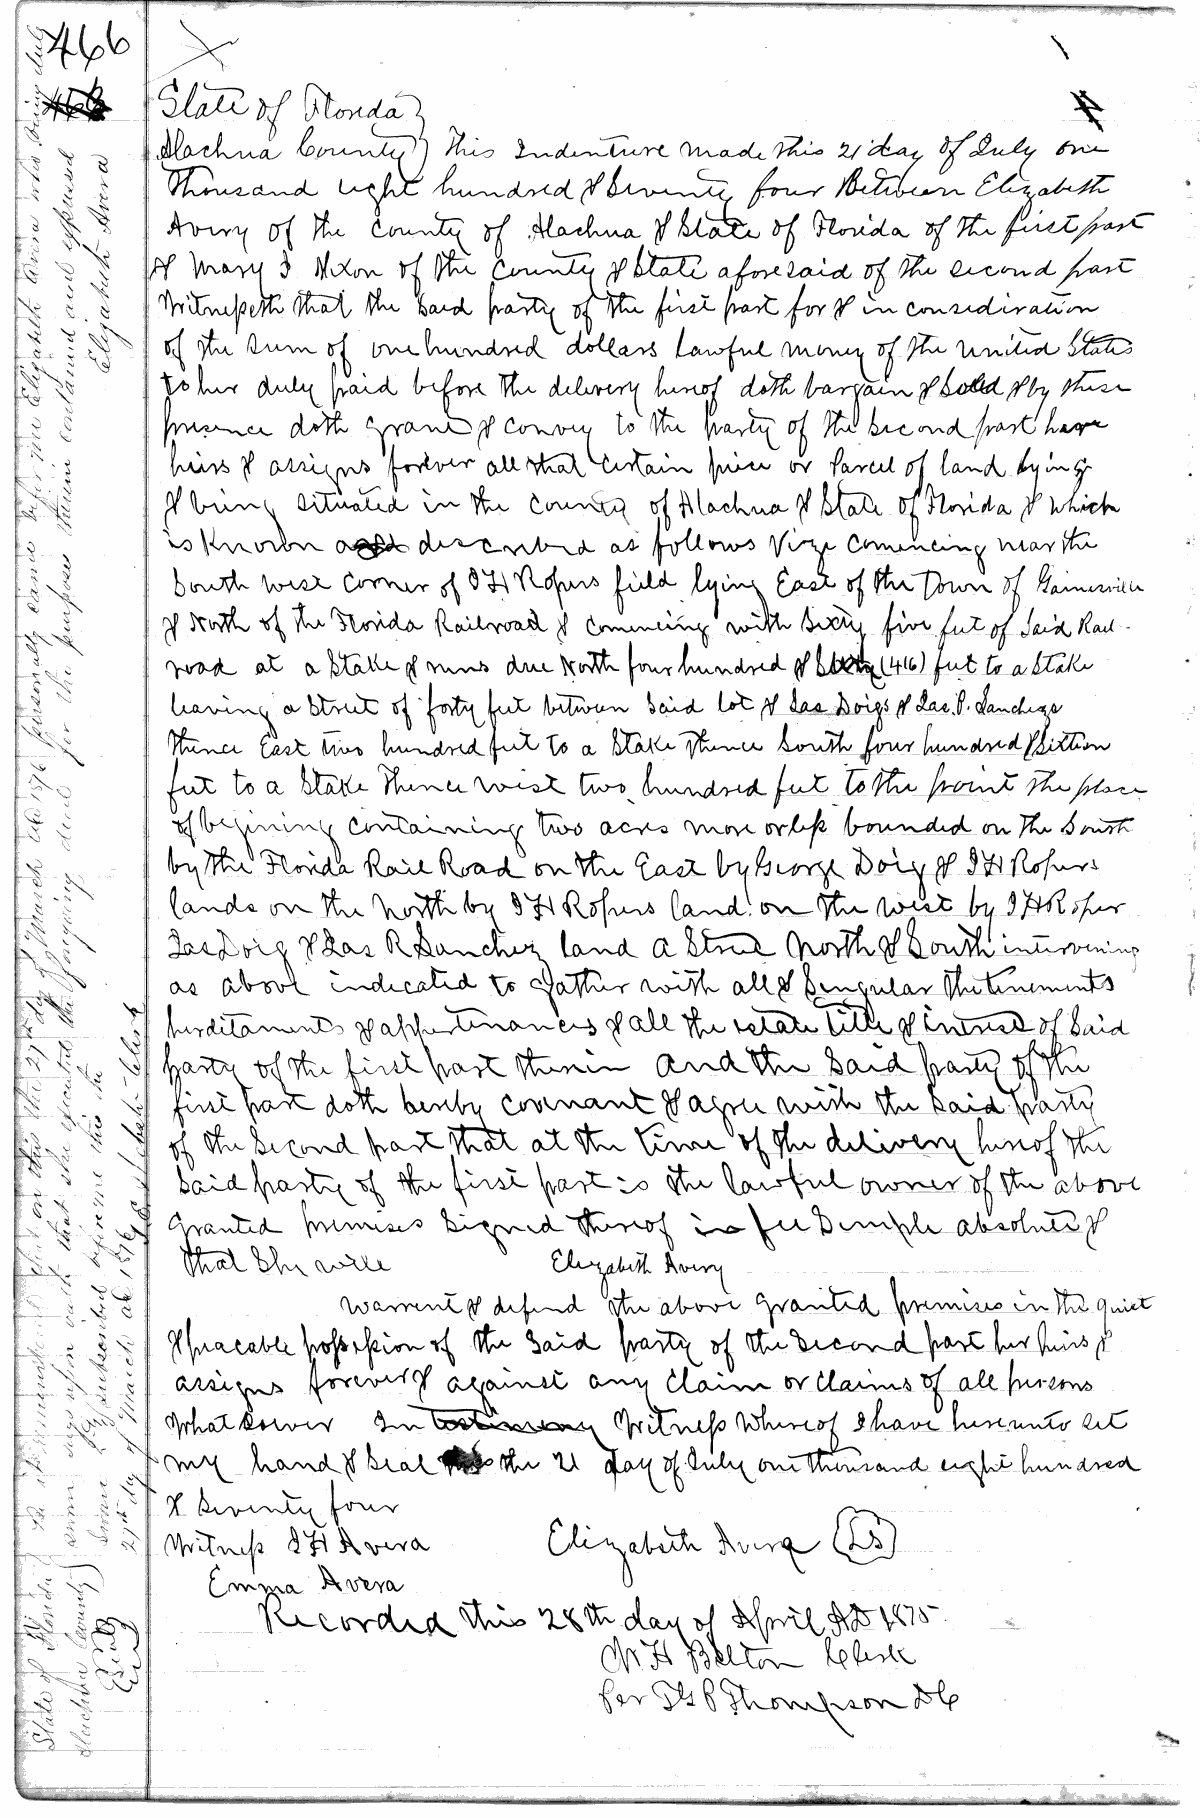 466
State of Florida }
Alachua County } This Indenture made this 21 day of July one
thousand eight hundred & Seventy four Between Elizabeth
Avery of the county of Alachua & State of Florida of the first part
& Mary I Nixon of the County & State aforesaid of the second part
Witnesseth that the said party of the first part for & in consideration
of the sum of one hundred dollars Lawful money of the United States
to her duly paid before the delivery hereof doth bargain & Sold & by these
presence doth grant & convey to the party of the Second part
heirs & assigns forever all that certain piece or Parcel of land lying
& being situated in the County of Alachua & State of Florida & which
is Known described as follows Vize Comencing near the
South west corner of I H Ropers field lying East of the Town of Gainesville
& North of the Florida Railroad & comencing with Sixty five feet of Said Rail-
road at a Stake & runs due North four hundred & (416) feet to a Stake
leaving a Street of forty feet between Said lot & Jas Doigs & Jas. P. Sanchezs
thence East two hundred feet to a Stake thence South four hundred & Sixtion
feet to a Stake thence west two hundred feet to the point the place
of begining containing two acres more or less bounded on the South
by the Florida Rail Road on the East by George Doig & I H Ropers
lands on the North by I H Ropers land on the west by I H Roper
Jas Doig & Jas R Sanchez land a Street North & South intervening
as above indicated to gather with all & Singular the tenements
herditaments & appertinances & all the estate title & intrest of Said
party of the first part therein and the Said party of the
first part doth hereby covenant & agree with the Said party
of the Second part that at the time of the delivery hereof the
Said party of the first part is the lawful owner of the above
granted premises Signed thereof in fee Simple absolute &
that She will Elizabeth Avery
warrent & defend the above granted premises in the quiet
& peacable possession of the Said party of the Second part her heirs &
assigns forever & against any Claim or Claims of all persons
What soever In testimony Witness Whereof I have hereunto set
my hand & Seal the 21 day of July one thousand eight hundred
& Seventy four
Witness I H Avera Elizabeth Avera (LS)
Emma Avera
Recorded this 28th day of April AD 1875
Clerk
Per Thompson DC
State of Florida }
Alachua County } Be it remembered that on this the 27th day of March AD 1876 personally came before me Elizabeth Avera who being duly
sworn says upon oath that she executed the foregoing deed for the purposes therein contained and expressed
Sworn & Subscribed before me this the Elizabeth Avera
27th dy of March AD 1876
Clerk